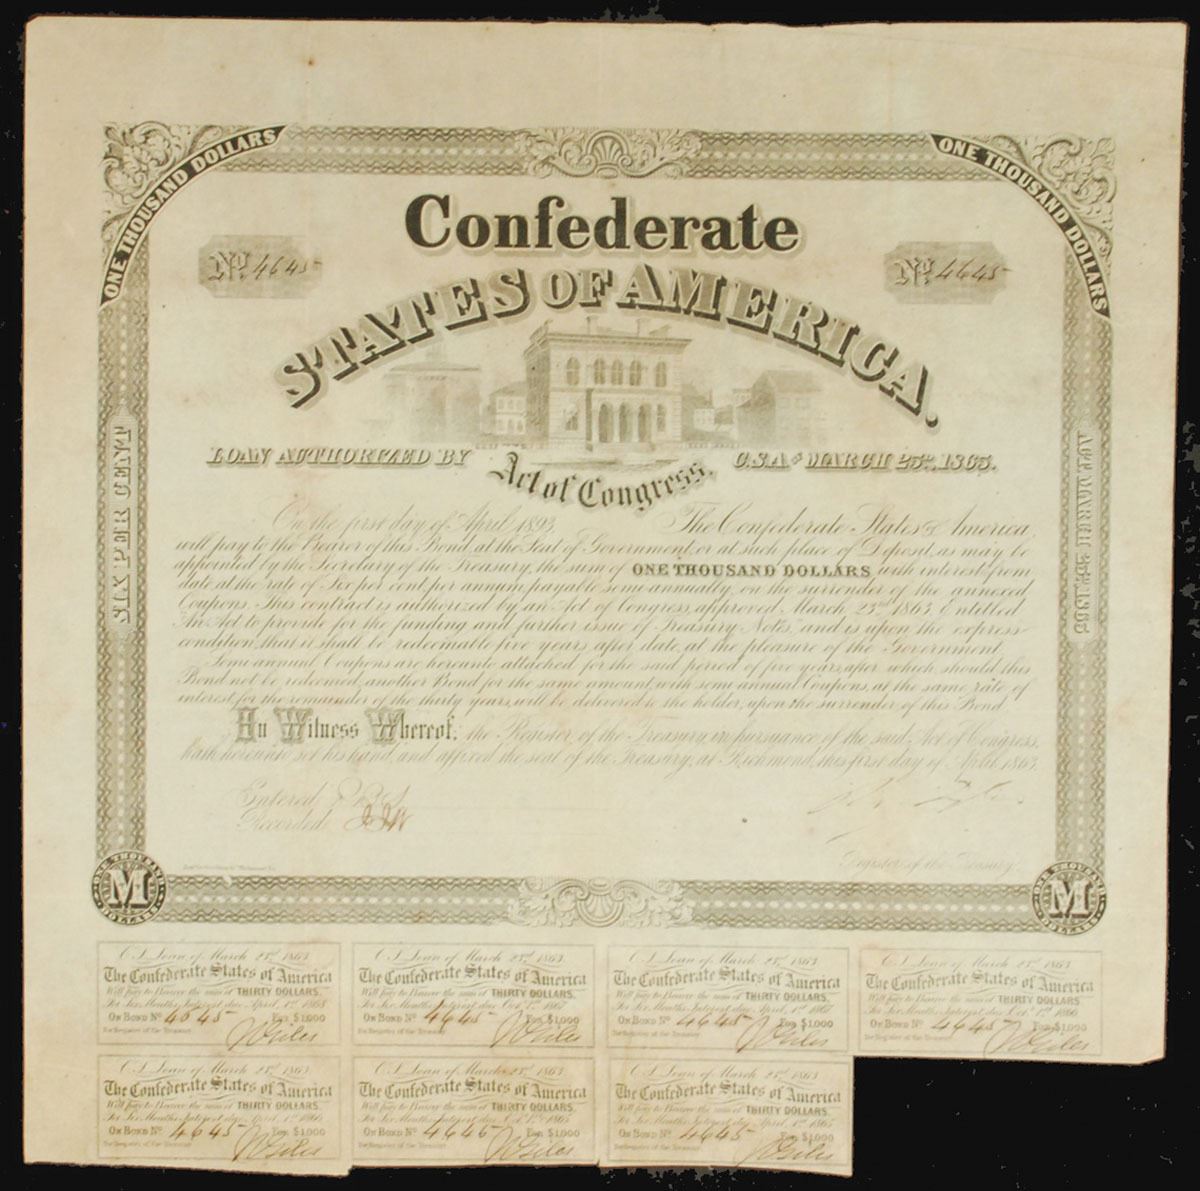 ONE THOUSAND DOLLARS
ONE THOUSAND DOLLARS
Confederate
No 4645
No 4645
STATES OF AMERICA.
LOAN AUTHORIZED BY
Act of Congress,
C.S.A. OF MARCH 23RD, 1863.
SIX PER CENT
ACT, MARCH 23RD, 1863
On the first day of April 1893, The Confederate States of America
will pay to the Bearer of this Bond, at the Seat of Government, or at such place of Deposit, as may be
appointed by the Secretary of the Treasury, the sum of ONE THOUSAND DOLLARS, with interest from
date at the rate of Six per cent. per annum, payable semi-annually, on the surrender of the annexed
Coupons. This contract is authorized by an Act of Congress, approved March 23rd 1863, Entitled
"An Act to provide for the funding and further issue of Treasury Notes," and is upon the express
condition, that it shall be redeemable five years after date, at the pleasure of the Government.
Semi-annual Coupons are hereunto attached for the said period of five years, after which should this
Bond not be redeemed, another Bond for the same amount, with semi annual Coupons, at the same rate of
interest, for the remainder of the thirty years, will be delivered to the holder, upon the surrender of this Bond.
In Witness Whereof, the Register of the Treasury, in pursuance of the said Act of Congress,
hath hereunto set his hand, and affixed the seal of the Treasury, at Richmond, this first day of April 1863.
Entered
Recorded
Register of the Treasury.
ONE THOUSAND
M
DOLLARS
ONE THOUSAND
M
DOLLARS
C.S. Loan of March 23rd 1863
The Confederate States of America
Will pay to Bearer the sum of THIRTY DOLLARS,
For Six Months Interest due April 1st 1868
ON BOND No 4645 FOR $1,000
For Register of the Treasury
C.S. Loan of March 23rd 1863
The Confederate States of America
Will pay to Bearer the sum of THIRTY DOLLARS,
For Six Months Interest due Oct. 1st 1867
ON BOND No 4645 FOR $1,000
For Register of the Treasury
C.S. Loan of March 23rd 1863
The Confederate States of America
Will pay to Bearer the sum of THIRTY DOLLARS,
For Six Months Interest due April 1st 1867
ON BOND No 4645 FOR $1,000
For Register of the Treasury
C.S. Loan of March 23rd 1863
The Confederate States of America
Will pay to Bearer the sum of THIRTY DOLLARS,
For Six Months Interest due Oct. 1st 1866
ON BOND No 4645 FOR $1,000
For Register of the Treasury
C.S. Loan of March 23rd 1863
The Confederate States of America
Will pay to Bearer the sum of THIRTY DOLLARS,
For Six Months Interest due April 1st 1866
ON BOND No 4645 FOR $1,000
For Register of the Treasury
C.S. Loan of March 23rd 1863
The Confederate States of America
Will pay to Bearer the sum of THIRTY DOLLARS,
For Six Months Interest due Oct. 1st 1865
ON BOND No 4645 FOR $1,000
For Register of the Treasury
C.S. Loan of March 23rd 1863
The Confederate States of America
Will pay to Bearer the sum of THIRTY DOLLARS,
For Six Months Interest due April 1st 1865
ON BOND No 4645 FOR $1,000
For Register of the Treasury